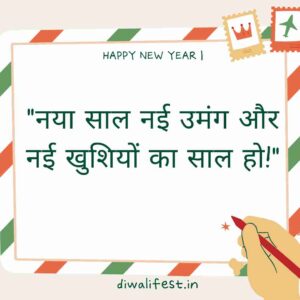 HAPPY NEW YEAR |
"नया साल नई उमंग और
नई खुशियों का साल हो!"
diwalifest.in